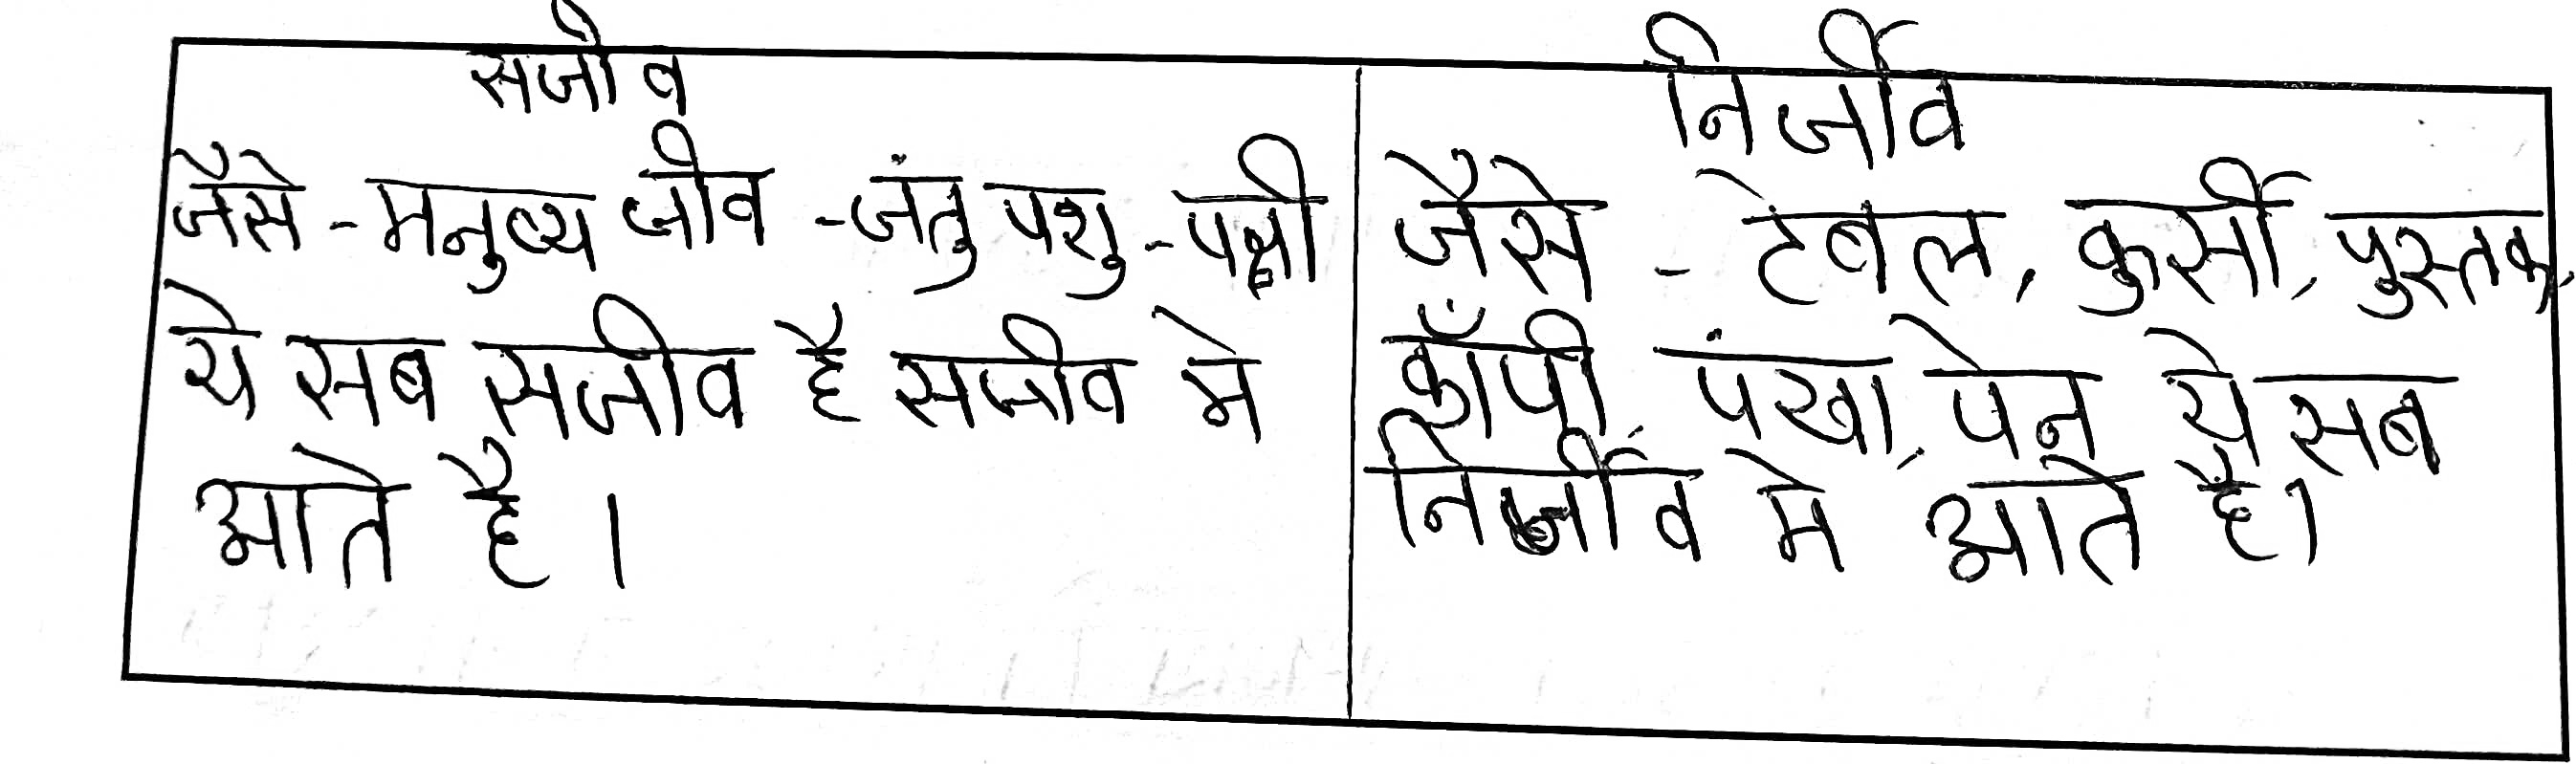 सजीव
जैसे - मनुष्य जीव - जंतु पशु - पक्षी
ये सब सजीव है सजीव मे
आते है।
निर्जीव
जैसे - टेबल, कुर्सी, पुस्तक,
कॉंपी, पंखा, पेन ये सब
निर्जीव मे आते है।